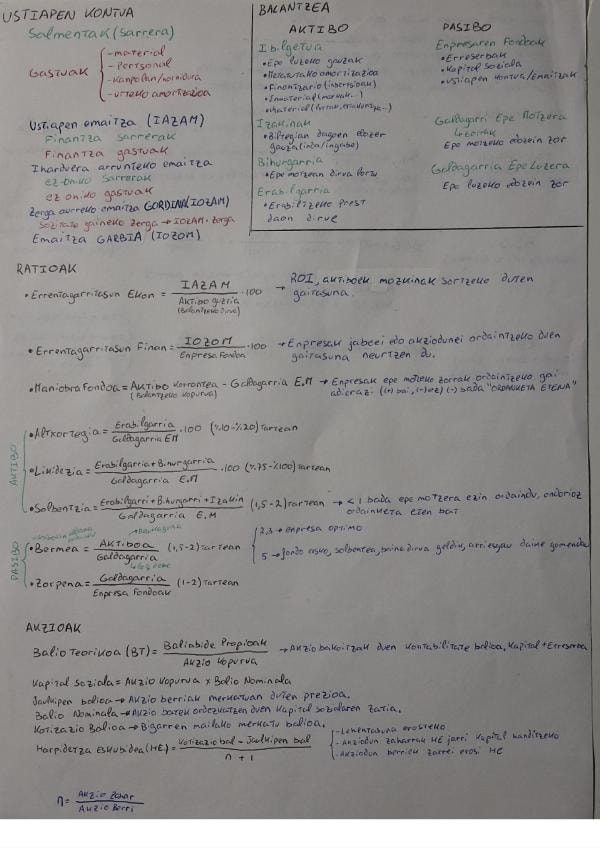 USTIAPEN KONTUA
Salmentak (sarrera)
Gastuak
-material
-Pertsonal
-Kanpolan/hornidura
-urteko amortizazioa
Ustiapen emaitza (IAZAM)
Finantza sarrerak
Finantza gastuak
Iharduera arrunteko emaitza
ez ohiko sarrerak
ez ohiko gastuak
Zerga aurreko emaitza GORDINA (IOZAM)
Sozitate gaineko zerga → IOZAM·zerga
Emaitza GARBIA (IOZOM)
BALANTZEA
AKTIBO
Ibilgetua
•Epe luzeko gauzak
•Metatutako amortizazioa
•Finantzario (inbertsioak)
•Inmaterial (markak...)
•Material (lurrak, eraikuntza...)
Izakinak
•Biltegian dagoen edozer
gauza (indu/ingabe)
Bihurgarria
•Epe motzean dirua lortu
Erabilgarria
•Erabiltzeko prest
daon dirue
PASIBO
Enpresaren Fondoak
•Erreserbak
•Kapital soziala
•Ustiapen kontua/Emaitzak
Galdagarri Epe Motzera
Epe motzeko edozein zor
Galdagarria Epe Luzera
Epe luzeko edozein zor
RATIOAK
•Errentagarritasun Ekon = IAZAM / Aktibo guztia ·100 → ROI, aktiboek mozkinak sortzeko duten
(Balantzeko dirue)
gaitasuna.
•Errentagarritasun Finan = IOZOM / Enpresa Fondoa ·100 → Enpresak jabeei edo akziodunei ordaintzeko duen
gaitasuna neurtzen du.
•Maniobra Fondoa = Aktibo korrontea - Galdagarria E.M → Enpresak epe motzeko zorrak ordaintzeko gai
(Balantzeko kopurua)
adieraz. (+) bai, (-) ez) (-) bada "ORDAINKETA ETENA"
AKTIBO
•Altxortegia = Erabilgarria / Galdagarria EM ·100 (%10-%20) Tartean
•Likidezia = Erabilgarria + Bihurgarria / Galdagarria E.M ·100 (%75-%100) tartean
•Solbentzia = Erabilgarri + Bihurgarri + Izakin / Galdagarria E.M (1,5-2) tartean → <1 bada epe motzera ezin ordaindu, ondorioz
ordainketa eten bat
PASIBO
•Bermea = AKTIBOA / Galdagarria (1,5-2) Tartean
2,3 → enpresa optimo
5 → fondo asko, solbentea, baina dirua geldin, arriesgau daike gomenda
•Zorpena = Galdagarria / Enpresa Fondoak (1-2) Tartean
AKZIOAK
Balio Teorikoa (BT) = Baliabide Propioak / Akzio kopurua → Akzio bakoitzak duen kontabilitate balioa, Kapital + Erreserba
Kapital Soziala = Akzio Kopurua x Balio Nominala
Jaulkipen balioa → Akzio berriak merkatuan duten prezioa.
Balio Nominala → Akzio batek ordezkatzen duen kapital sozialaren zatia.
Kotizazio Balioa → Bigarren mailako merkatu balioa.
Harpidetza Eskubidea (HE) = Kotizazio bal - Jaulkipen bal / n + 1
-Lehentasuna erosteko
-Akziodun zaharrak HE jarri kapital handitzeko
-Akziodun berriek zarrei erosi HE
n = Akzio Zahar / Akzio Berri